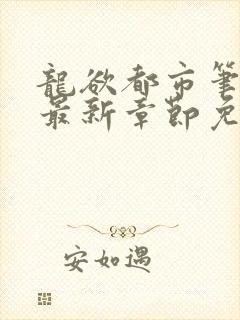 龍欲都市筆
最新章節免
安如遇